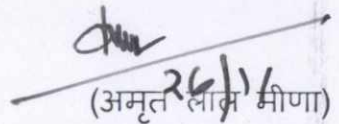 26/11
(अमृत लाल मीणा)